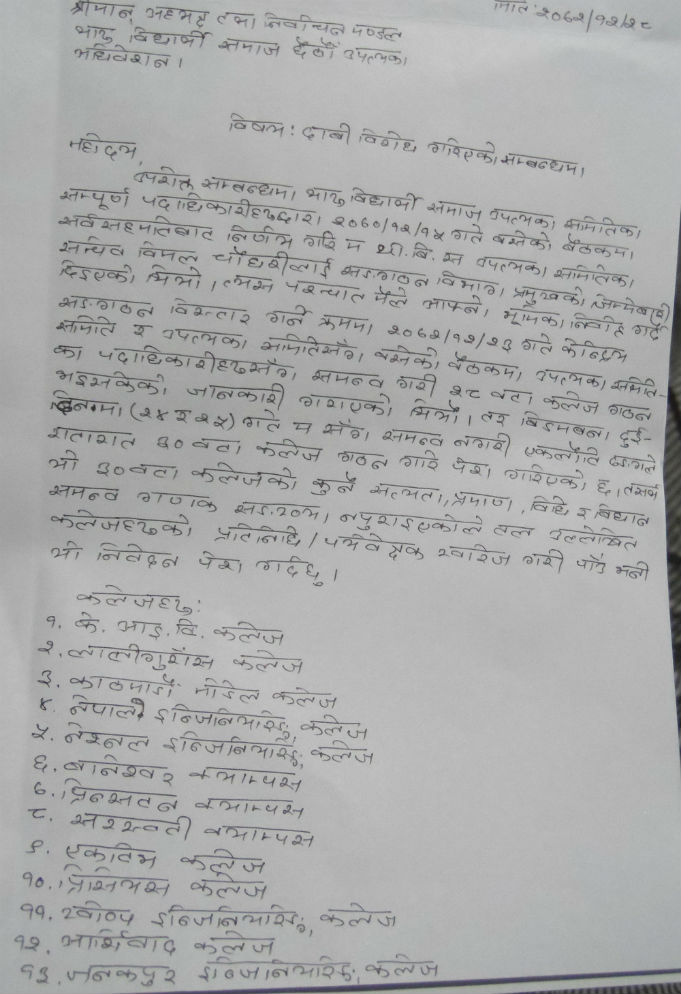 मिति: २०७२/१२/२८
श्रीमान् अध्यक्ष तथा निर्वाचन मण्डल
थारु विद्यार्थी समाज छैठौं उपत्यका
अधिवेशन।
विषय: दाबी विरोध गरिएको सम्बन्धमा।
महोदय,
उपरोक्त सम्बन्धमा थारु विद्यार्थी समाज उपत्यका समितिका
सम्पूर्ण पदाधिकारीहरुद्वारा २०७०/१२/१५ गते बसेको बैठकमा
सर्वसहमतिबाट निर्णय गरि म था.वि.स उपत्यका समितिका
सचिव विमल चौधरीलाई सङगठन विभाग प्रमुखको जिम्मेवारी
दिइएको थियो। त्यस पश्चात मैले आफ्नो भूमिका निर्वाह गर्दै
सङगठन विस्तार गर्ने क्रममा २०७२/१२/२३ गते केन्द्रिय
समिति र उपत्यका समितिसँग बसेको बैठकमा उपत्यका समिति-
का पदाधिकारीहरुसँग समन्व गरी १८ वटा कलेज गठन
भइसकेको जानकारी गराएको थियौं। तर बिडम्बना दुई-
दिनमा (२४ र २५) गते म सँग समन्व नगरी एकलौटि ढङगले
रातारात ३० वटा कलेज गठन गरि पेश गरिएको छ। तसर्थ
यो ३० वटा कलेजको कुनै सत्यता, प्रमाण, विधि र विधान
समन्व गणक सङख्या नपुराइएकोले तल उल्लेखित
कलेजहरुको प्रतिनिधि / पर्यवेक्षक खारेज गरी पाउँ भनी
यो निवेदन पेश गर्दछु।
कलेजहरु:
१. के. आइ. वि. कलेज
२. लालीगुराँस कलेज
३. काठमाडौं मोडेल कलेज
४. नेपाल इन्जिनियरिङ कलेज
५. नेश्नल इन्जिनियरिङ कलेज
६. बानेश्वर क्याम्पस
७. प्रिन्सटन क्याम्पस
८. सरस्वती क्याम्पस
९. एकाडेमि कलेज
१०. प्रिमियस कलेज
११. ख्वोप इन्जिनियरिङ कलेज
१२. आर्शिवाद कलेज
१३. जनकपुर इन्जिनियरिङ कलेज